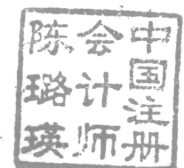 中国注册
会计师
陈璐瑛